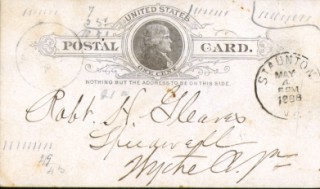 7
UNITED STATES
POSTAL CARD.
ONE CENT
NOTHING BUT THE ADDRESS TO BE ON THIS SIDE.
STAUNTON
MAY
6PM
1888
Robt. H. Gleaves
Speedwell
Wythe Co.